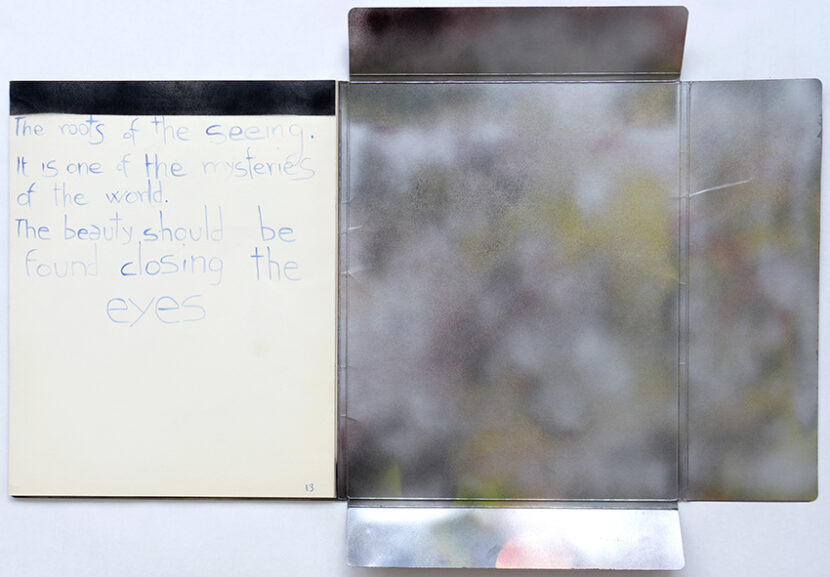 The roots of the seeing.
It is one of the mysteries
of the world.
The beauty should be
found closing the
eyes
13